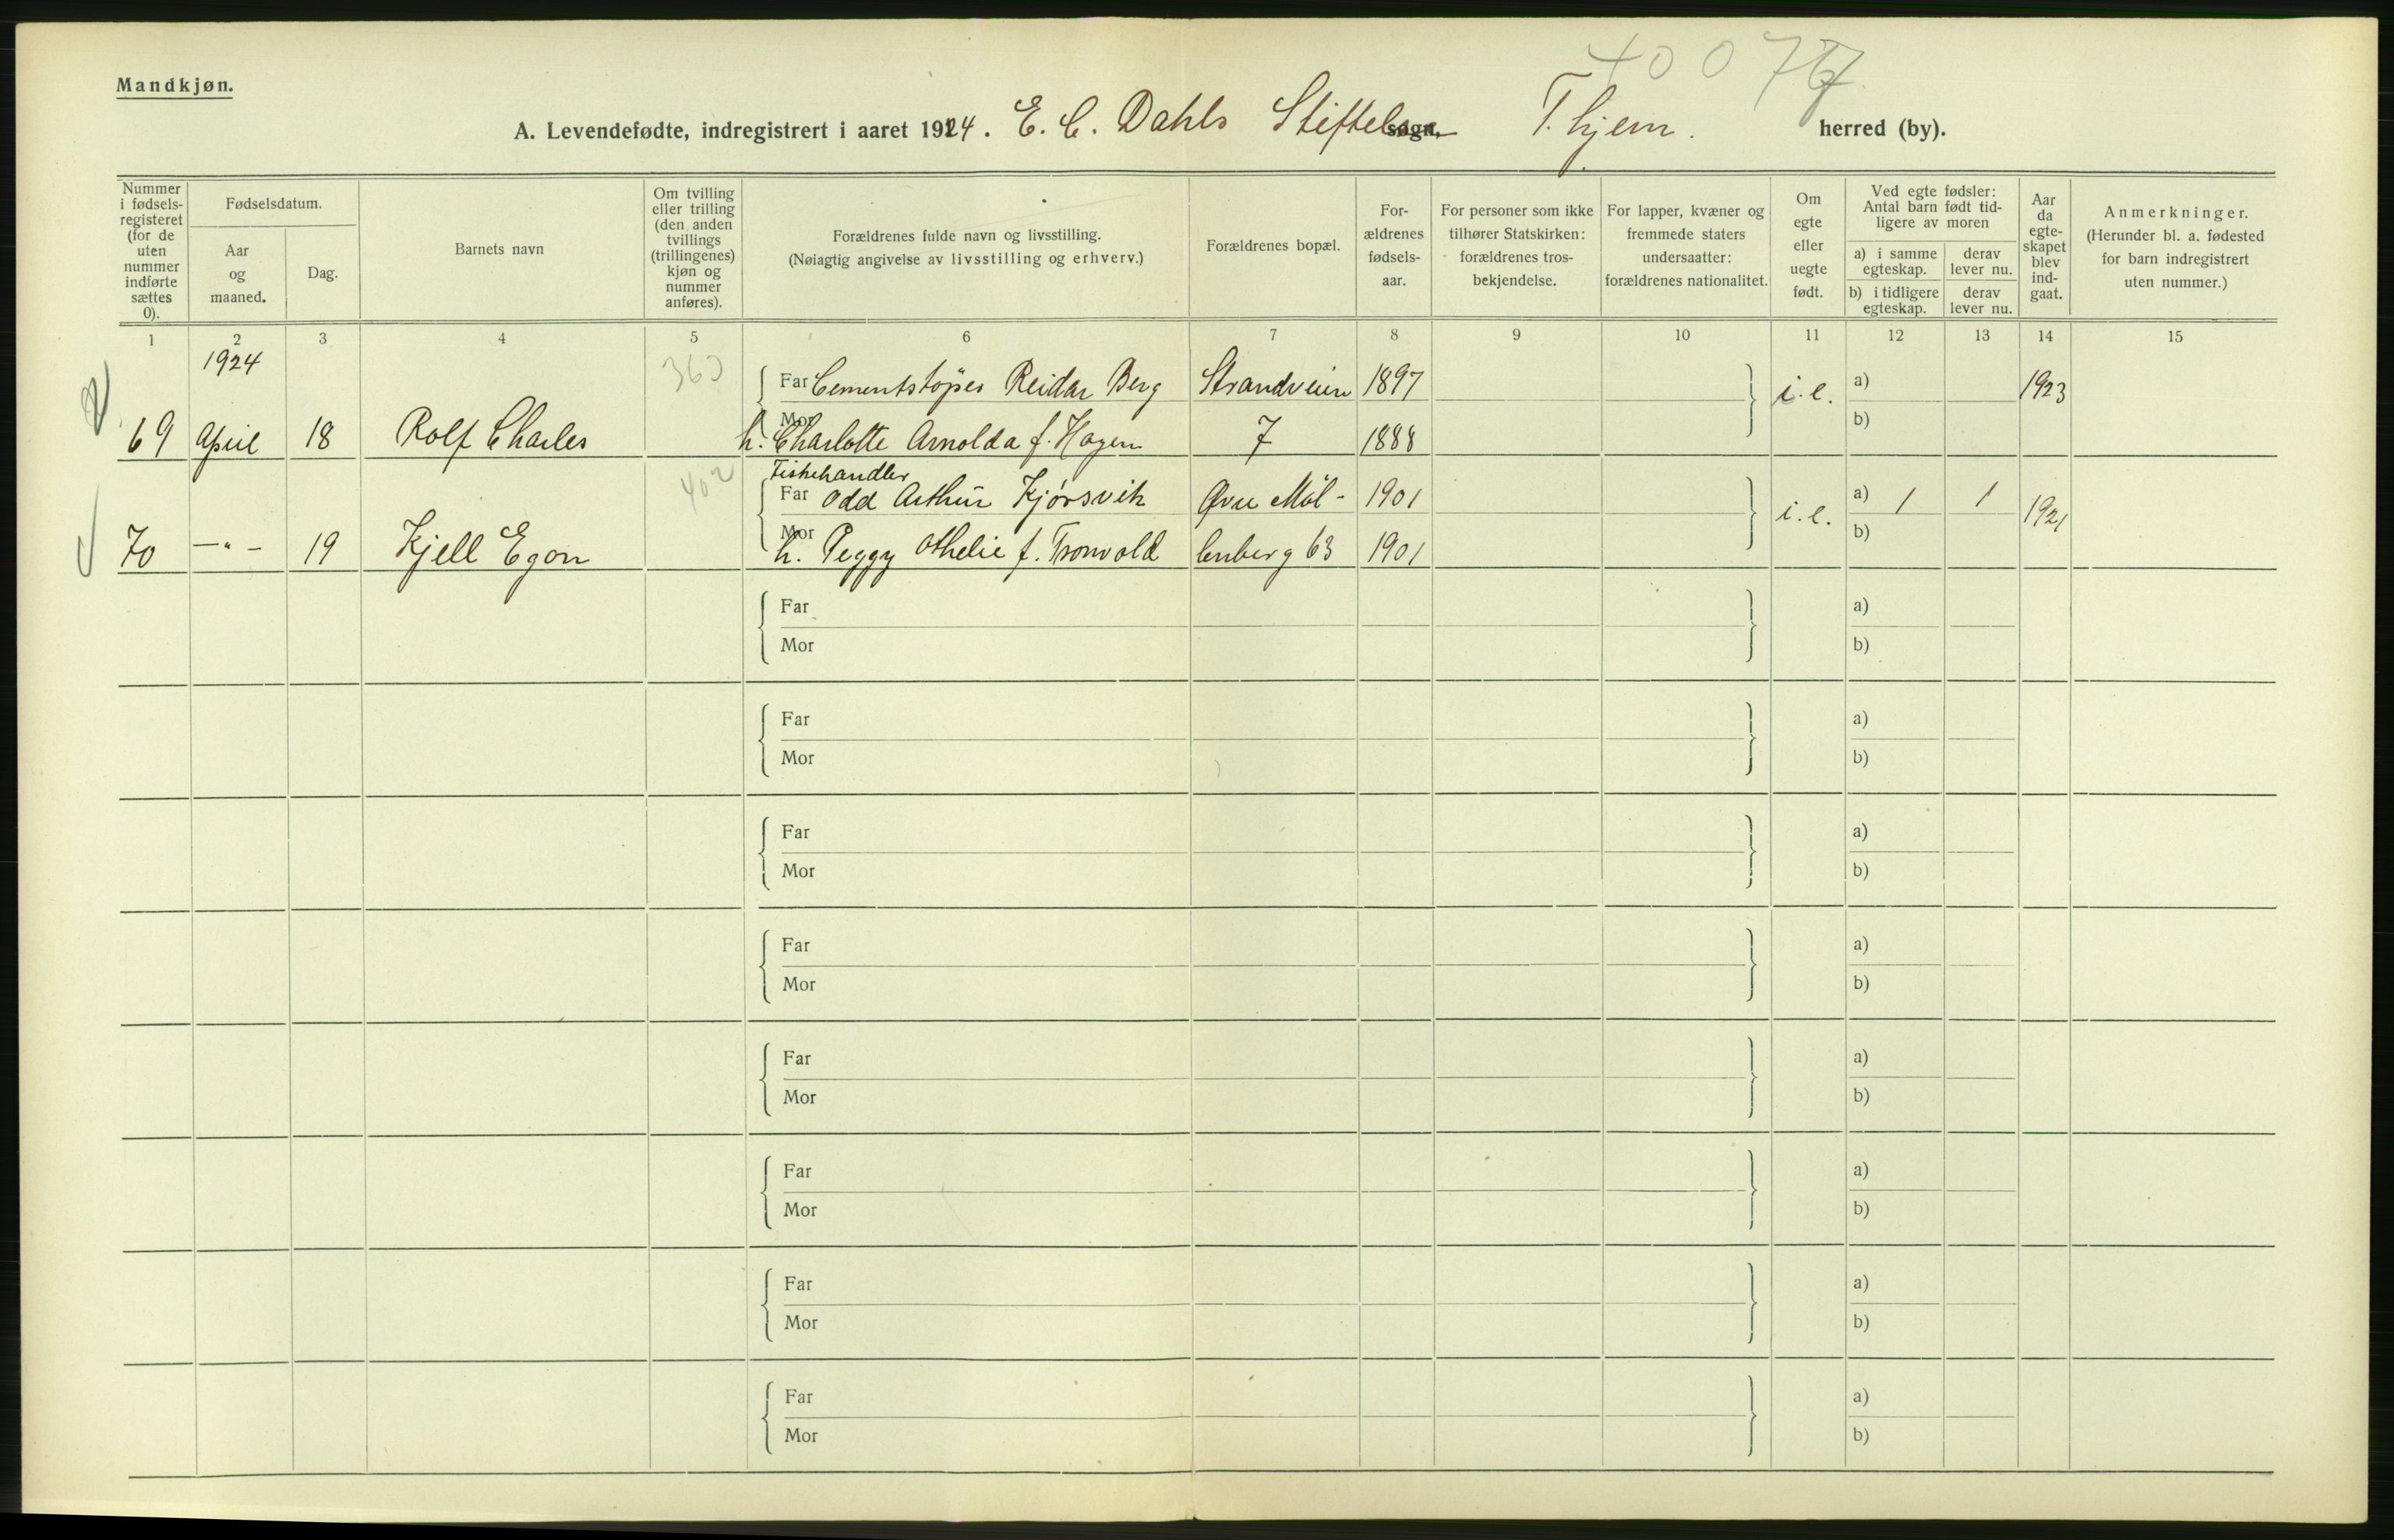 Mandkjøn.
A. Levendefødte, indregistrert i aaret 1924. E. C. Dahls Stiftelse sogn, T.hjem. herred (by).
Nummer i fødsels-registeret (for de uten nummer indførte sættes 0).
Fødselsdatum.
Aar og maaned.
Dag.
Barnets navn
Om tvilling eller trilling (den anden tvillings (trillingenes) kjøn og nummer anføres).
Forældrenes fulde navn og livsstilling.
(Nøiagtig angivelse av livsstilling og erhverv.)
Forældrenes bopæl.
For-ældrenes fødsels-aar.
For personer som ikke tilhører Statskirken: forældrenes tros-bekjendelse.
For lapper, kvæner og fremmede staters undersaatter: forældrenes nationalitet.
Om egte eller uegte født.
Ved egte fødsler: Antal barn født tid-ligere av moren
a) i samme egteskap.
derav lever nu.
b) i tidligere egteskap.
derav lever nu.
Aar da egte-skapet blev ind-gaat.
Anmerkninger.
(Herunder bl. a. fødested for barn indregistrert uten nummer.)
1 2 3 4 5 6 7 8 9 10 11 12 13 14 15
1924
Far Cementstøper Reidar Berg Strandveien 1897 i.e. a) 1923
69 April 18 Rolf Charles Mor h. Charlotte Arnolda f. Hagen 7 1888 b)
402
Fiskehandler
Far Odd Arthur Kjørsvik Øvre Møl- 1901 i.e. a) 1 1 1921
70 —"— 19 Kjell Egon Mor h. Peggy Othelie f. Tronvold lenberg 63 1901 b)
Far a)
Mor b)
Far a)
Mor b)
Far a)
Mor b)
Far a)
Mor b)
Far a)
Mor b)
Far a)
Mor b)
Far a)
Mor b)
Far a)
Mor b)